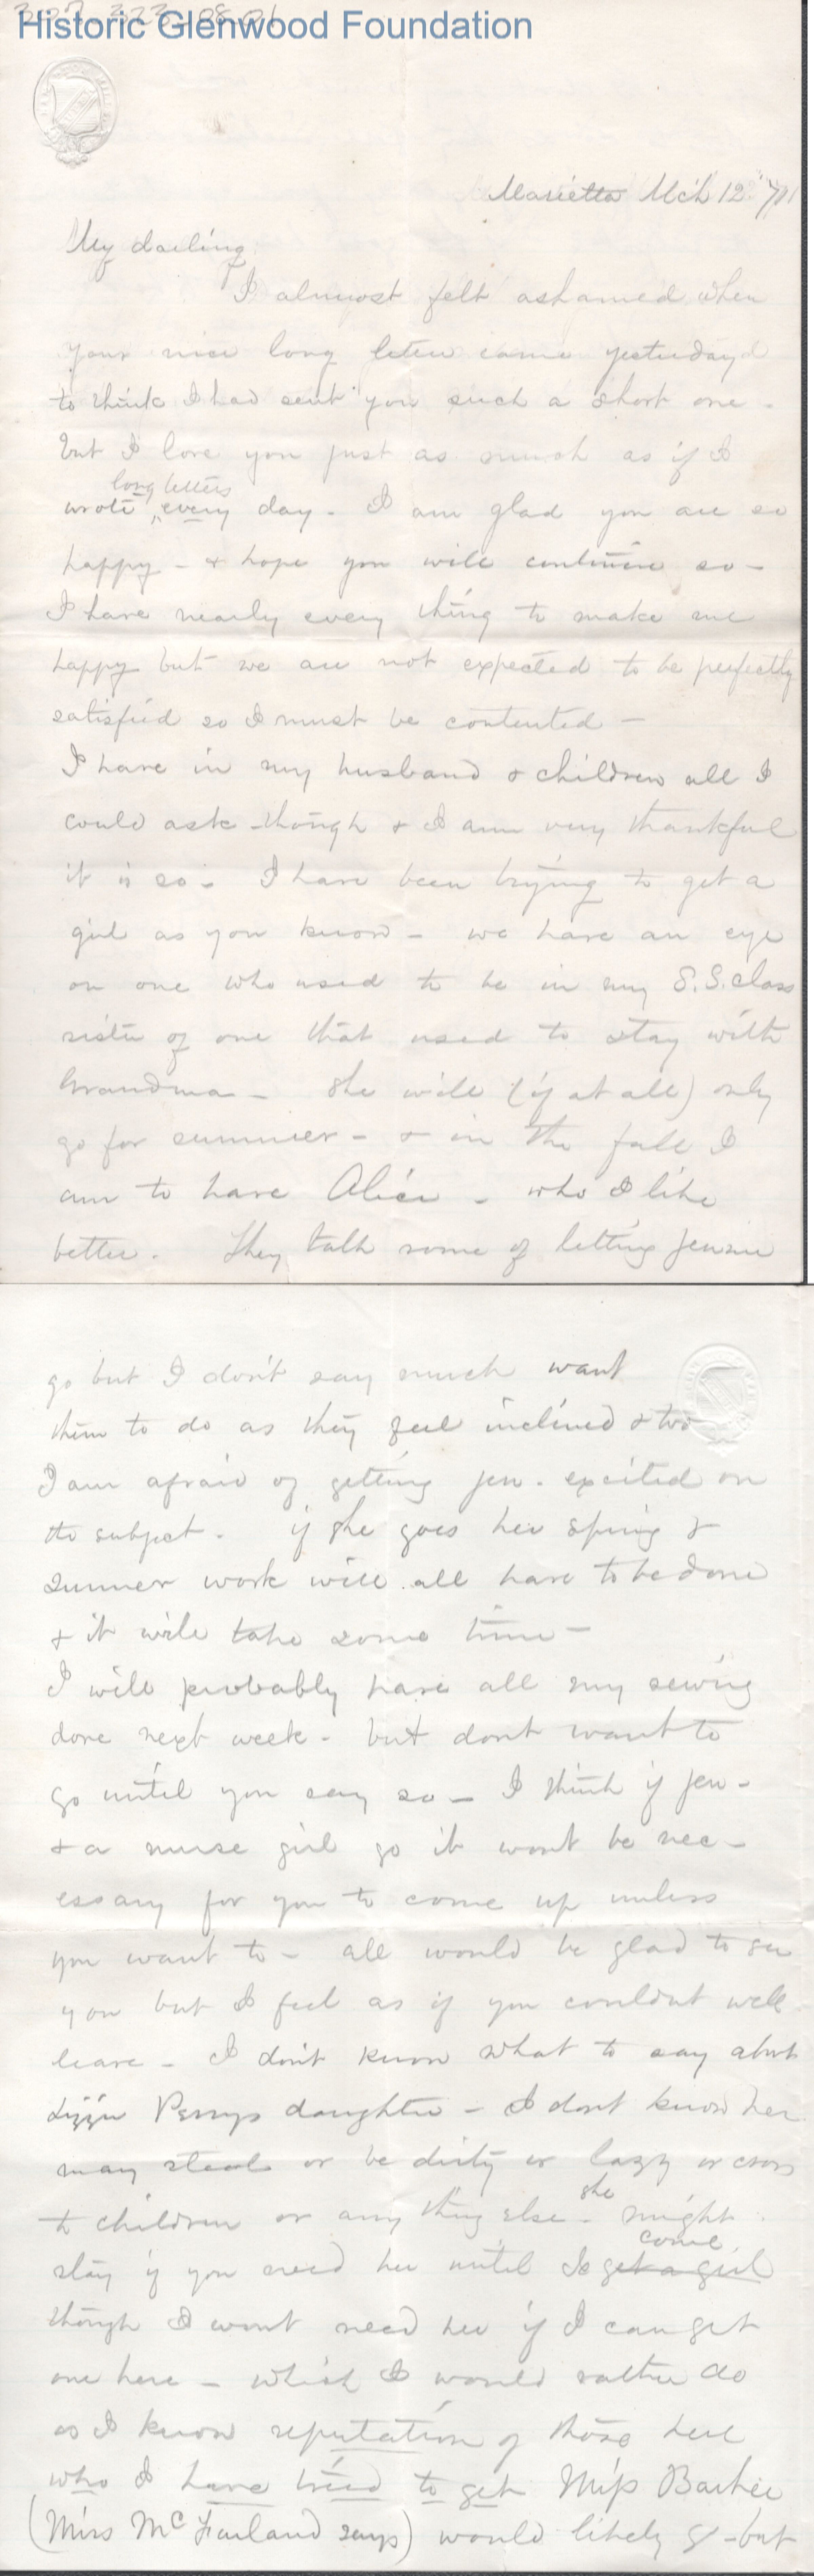 307_323_08_01
Historic Glenwood Foundation
Marietta Mch 12" 71
My darling
I almost felt ashamed when
your nice long letter came yesterday
to think I had sent you such a short one -
but I love you just as much as if I
long letters
wrote every day - I am glad you are so
happy - & hope you will continue so -
I have nearly every thing to make me
happy but we are not expected to be perfectly
satisfied so I must be contented -
I have in my husband & children all I
could ask though & I am very thankful
it is so - I have been trying to get a
girl as you know - we have an eye
on one who used to be in my S.S. class
sister of one that used to stay with
Grandma - she will (if at all) only
go for summer - & in the fall I
am to have Alice - who I like
better. They talk some of letting Jennie
go but I don't say much want
them to do as they feel inclined & two
I am afraid of getting Jen. excited on
the subject. if she goes her spring &
summer work will all have to be done
& it will take some time -
I will probably have all my sewing
done next week - but dont want to
go until you say so - I think if Jen -
& a nurse girl go it wont be nec-
essary for you to come up unless
you want to - all would be glad to see
you but I feel as if you couldnt well
leave - I don't know what to say about
Lizzie Perrys daughter - I dont know her
may steal or be dirty or lazy or cross
to children or any thing else - she might
come
stay if you need her until I get a girl
though I wont need her if I can get
one here - which I would rather do
as I know reputation of those here
who I have tried to get Miss Barker
(Miss McFarland says) would likely go - but